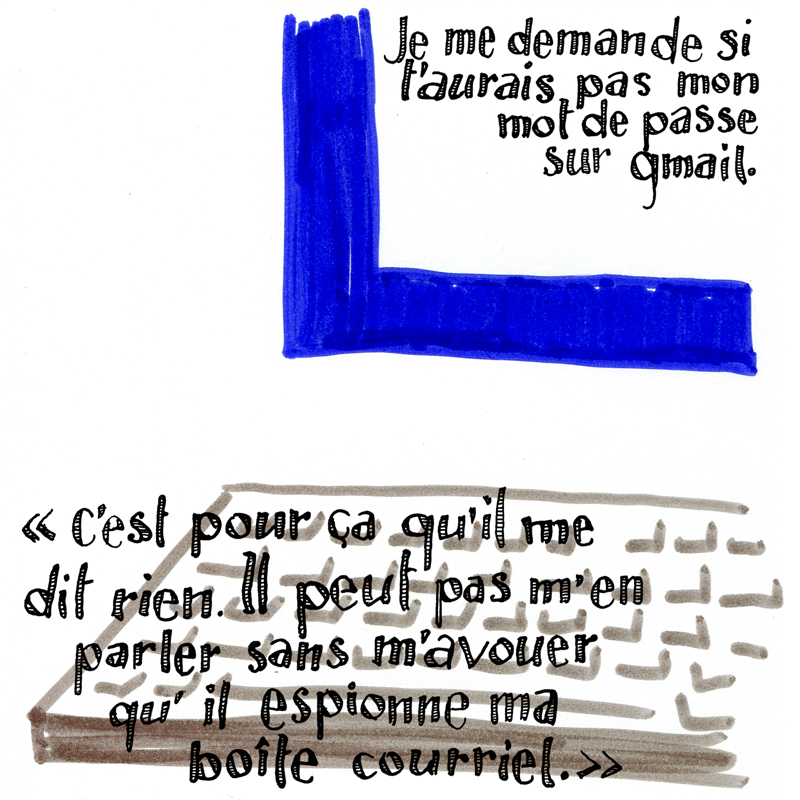 Je me demande si
t'aurais pas mon
mot de passe
sur gmail.
« C'est pour ça qu'il me
dit rien. Il peut pas m'en
parler sans m'avouer
qu'il espionne ma
boîte courriel.»